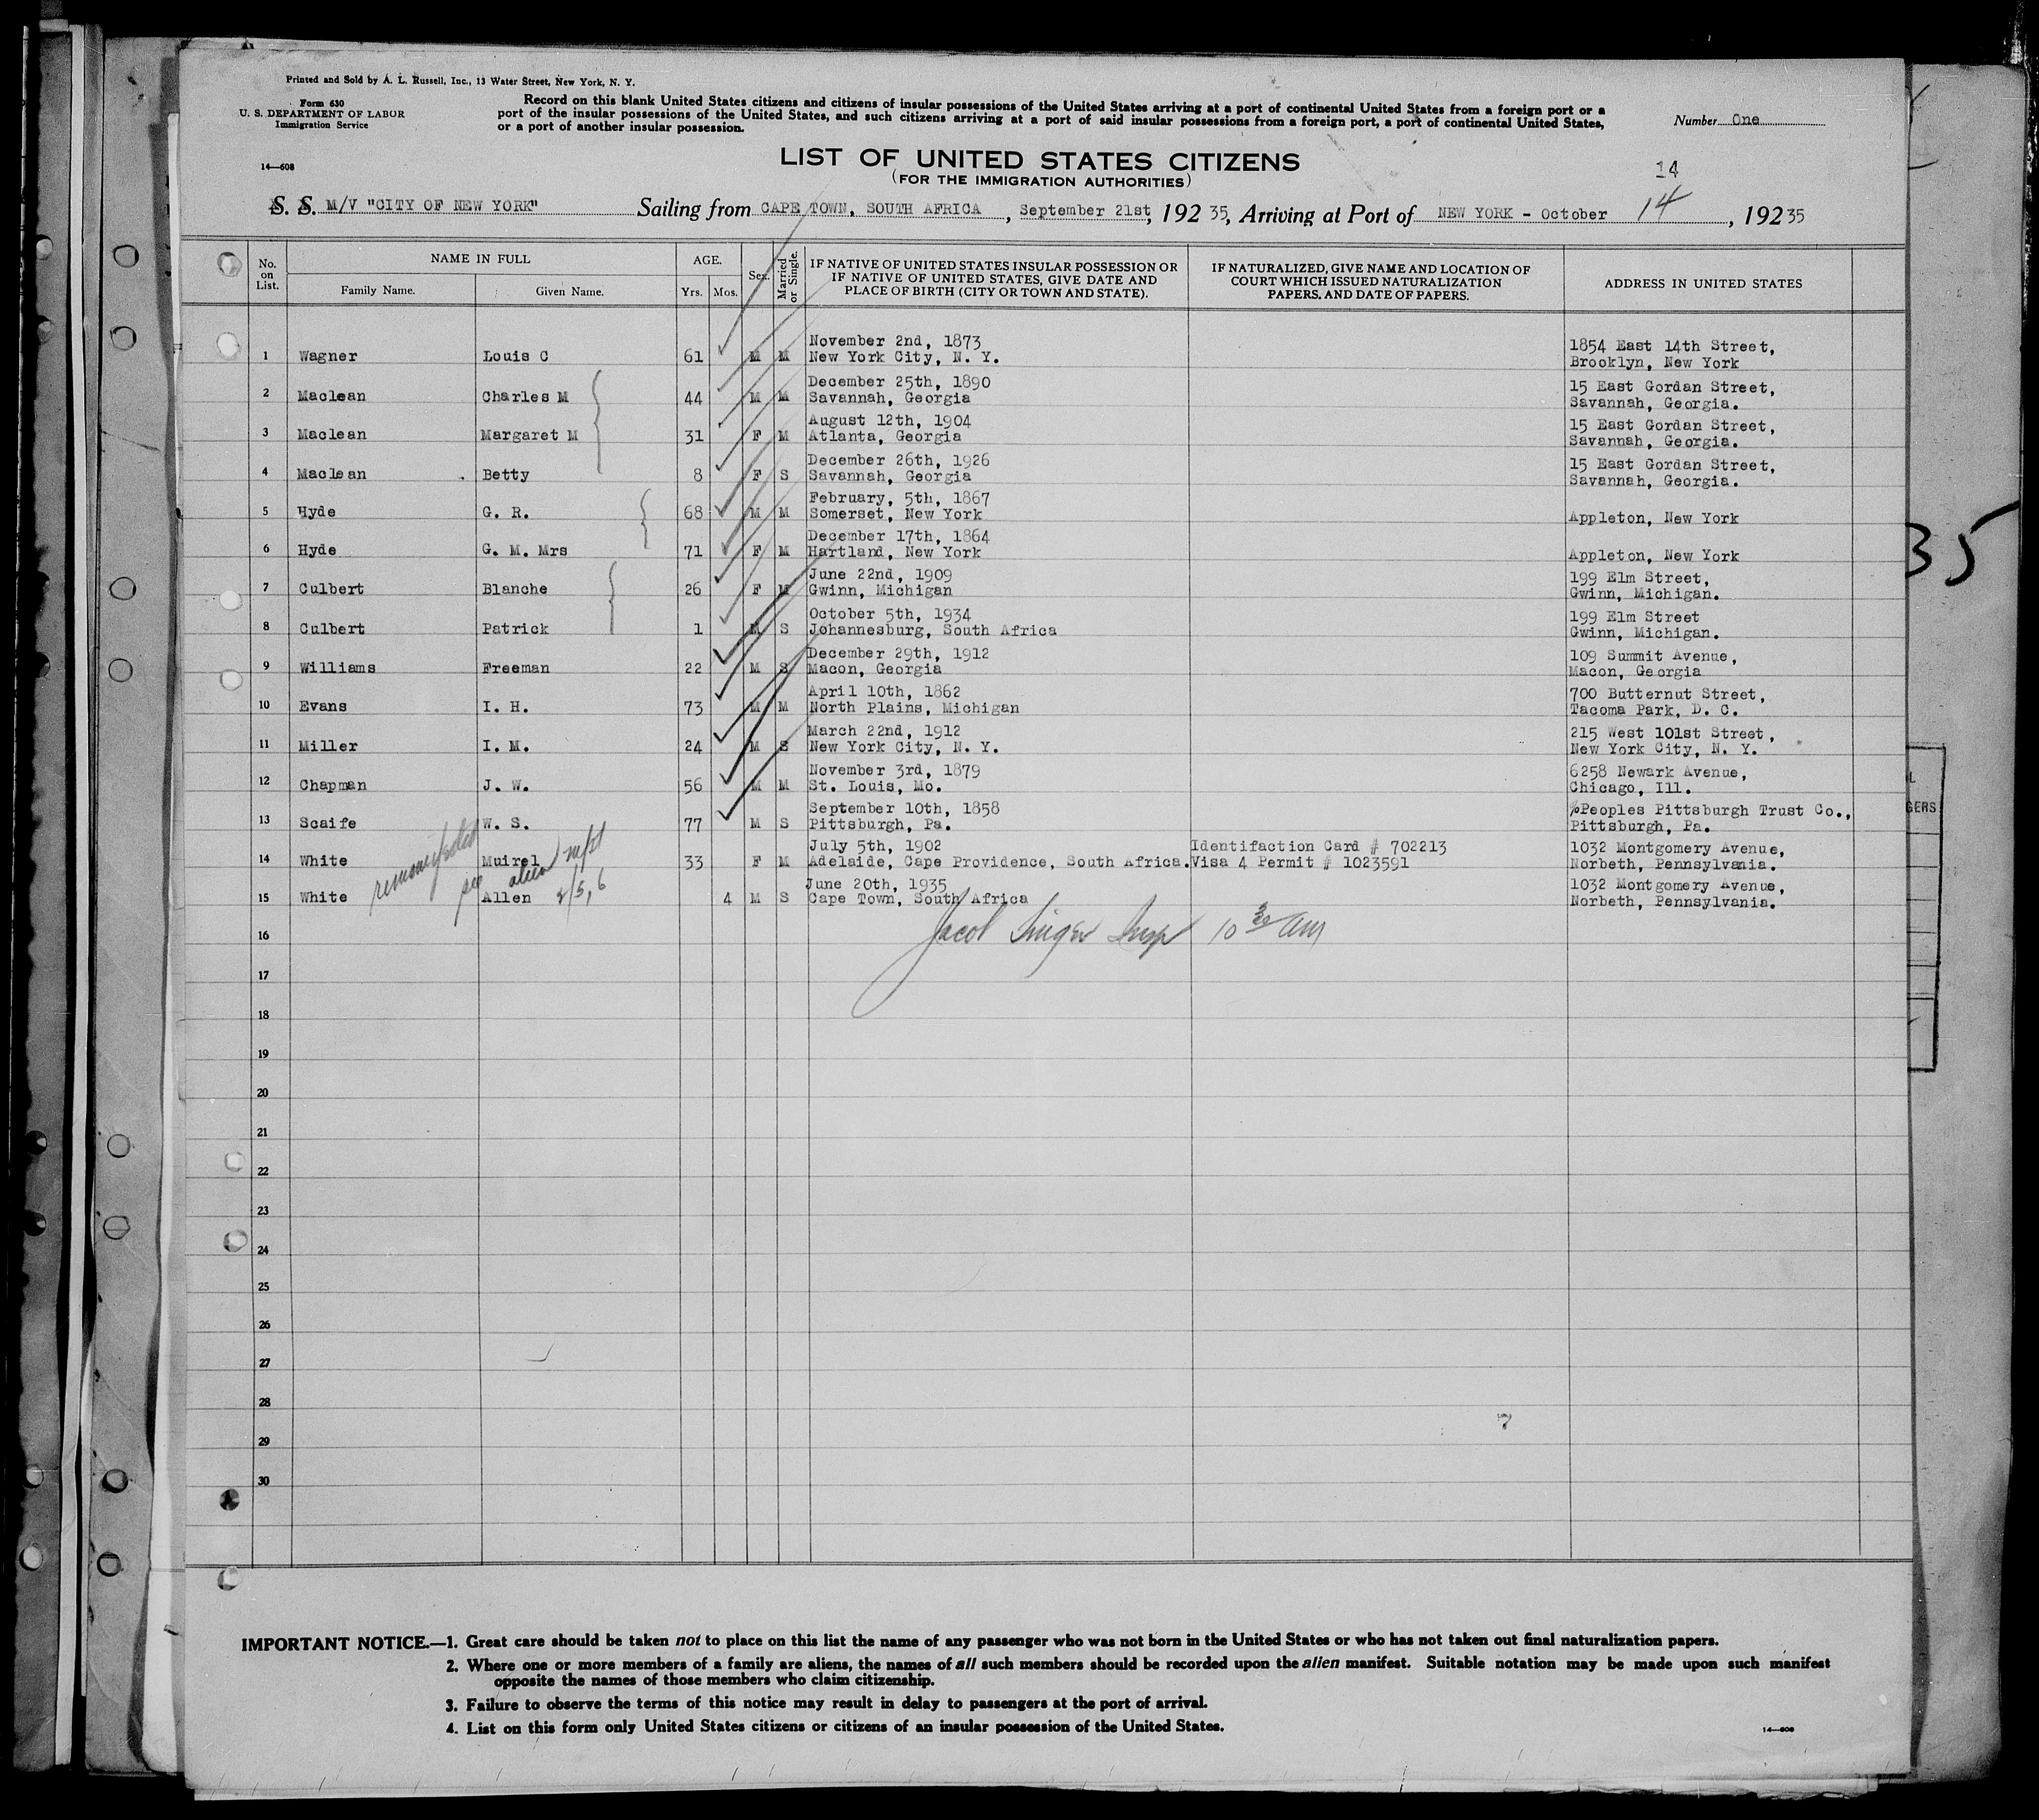 Printed and Sold by A. L. Russell, Inc., 13 Water Street, New York, N. Y.
Form 630
U. S. DEPARTMENT OF LABOR
Immigration Service
Record on this blank United States citizens and citizens of insular possessions of the United States arriving at a port of continental United States from a foreign port or a
port of the insular possessions of the United States, and such citizens arriving at a port of said insular possessions from a foreign port, a port of continental United States,
or a port of another insular possession.
Number One
14—608
LIST OF UNITED STATES CITIZENS
(FOR THE IMMIGRATION AUTHORITIES)
14
S. S. M/V "CITY OF NEW YORK" Sailing from CAPE TOWN, SOUTH AFRICA, September 21st, 192 35, Arriving at Port of NEW YORK - October 14, 192 35
No. on List. NAME IN FULL AGE. Sex. Married or Single. IF NATIVE OF UNITED STATES INSULAR POSSESSION OR IF NATIVE OF UNITED STATES, GIVE DATE AND PLACE OF BIRTH (CITY OR TOWN AND STATE). IF NATURALIZED, GIVE NAME AND LOCATION OF COURT WHICH ISSUED NATURALIZATION PAPERS, AND DATE OF PAPERS. ADDRESS IN UNITED STATES
Family Name. Given Name. Yrs. Mos.
November 2nd, 1873 1854 East 14th Street,
1 Wagner Louis C 61 M M New York City, N. Y. Brooklyn, New York
December 25th, 1890 15 East Gordan Street,
2 Maclean Charles M 44 M M Savannah, Georgia Savannah, Georgia.
August 12th, 1904 15 East Gordan Street,
3 Maclean Margaret M 31 F M Atlanta, Georgia Savannah, Georgia.
December 26th, 1926 15 East Gordan Street,
4 Maclean Betty 8 F S Savannah, Georgia Savannah, Georgia.
February, 5th, 1867
5 Hyde G. R. 68 M M Somerset, New York Appleton, New York
December 17th, 1864
6 Hyde G. M. Mrs 71 F M Hartland, New York Appleton, New York
June 22nd, 1909 199 Elm Street,
7 Culbert Blanche 26 F M Gwinn, Michigan Gwinn, Michigan.
October 5th, 1934 199 Elm Street
8 Culbert Patrick 1 M S Johannesburg, South Africa Gwinn, Michigan.
December 29th, 1912 109 Summit Avenue,
9 Williams Freeman 22 M S Macon, Georgia Macon, Georgia
April 10th, 1862 700 Butternut Street,
10 Evans I. H. 73 M M North Plains, Michigan Tacoma Park, D. C.
March 22nd, 1912 215 West 101st Street,
11 Miller I. M. 24 M S New York City, N. Y. New York City, N. Y.
November 3rd, 1879 6258 Newark Avenue,
12 Chapman J. W. 56 M M St. Louis, Mo. Chicago, Ill.
September 10th, 1858 %Peoples Pittsburgh Trust Co.,
13 Scaife W. S. 77 M S Pittsburgh, Pa. Pittsburgh, Pa.
July 5th, 1902 Identifaction Card # 702213 1032 Montgomery Avenue,
14 White Muirel 33 F M Adelaide, Cape Providence, South Africa. Visa 4 Permit # 1023591 Norbeth, Pennsylvania.
remanifested see alien
June 20th, 1935 1032 Montgomery Avenue,
15 White Allen 4 M S Cape Town, South Africa Norbeth, Pennsylvania.
16 Jacob Singer Insp 10 30 am
17
18
19
20
21
22
23
24
25
26
27
28
29
30
35
GERS
IMPORTANT NOTICE.—1. Great care should be taken not to place on this list the name of any passenger who was not born in the United States or who has not taken out final naturalization papers.
2. Where one or more members of a family are aliens, the names of all such members should be recorded upon the alien manifest. Suitable notation may be made upon such manifest
opposite the names of those members who claim citizenship.
3. Failure to observe the terms of this notice may result in delay to passengers at the port of arrival.
4. List on this form only United States citizens or citizens of an insular possession of the United States.
14—608